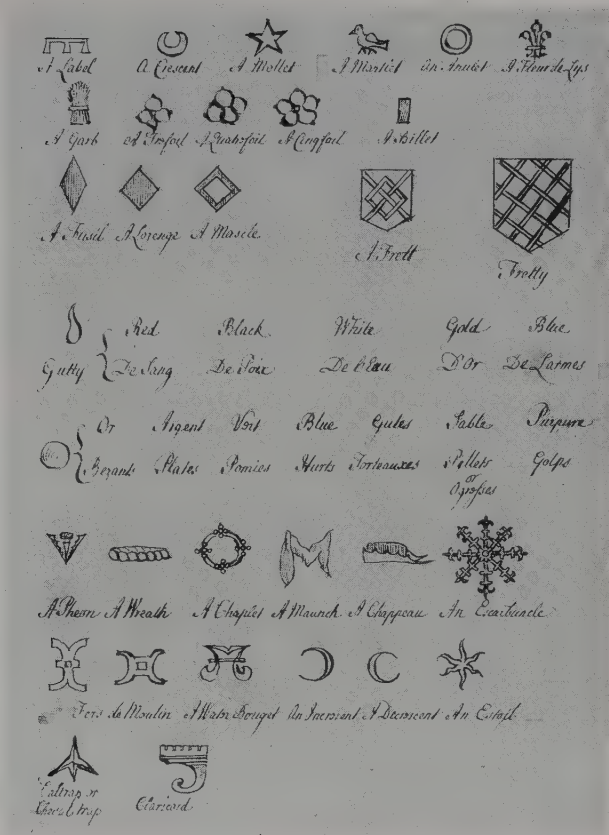 A Label A Crescent A Mollet A Martlet An Anulet A Fleur de Lys
A Garb A Trefoil A Quatrefoil A Cinqfoil A Billet
A Fusil A Lozenge A Mascle A Frett Fretty
Red Black White Gold Blue
Gutty De Sang De Poix De l'Eau D'Or De Larmes
Or Argent Vert Blue Gules Sable Purpure
Bezants Plates Pomies Hurts Torteauxes Pellets Golps
or
Ogresses
A Pheon A Wreath A Chaplet A Maunch A Chappeau An Escarbuncle
Fers de Moulin A Water Bouget An Increscent A Decrescent An Estoil
Caltrap or Claricord
Cheval trap